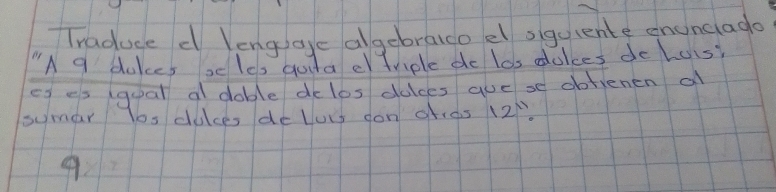 Traduce el lenguaje algebraico el siguiente enunciado
"A 9 dulces se les quita el triple de los dulces de Luis;
es es igual al doble de los dulces que se obtienen al
sumar los dulces de Luis con otros 12".
9